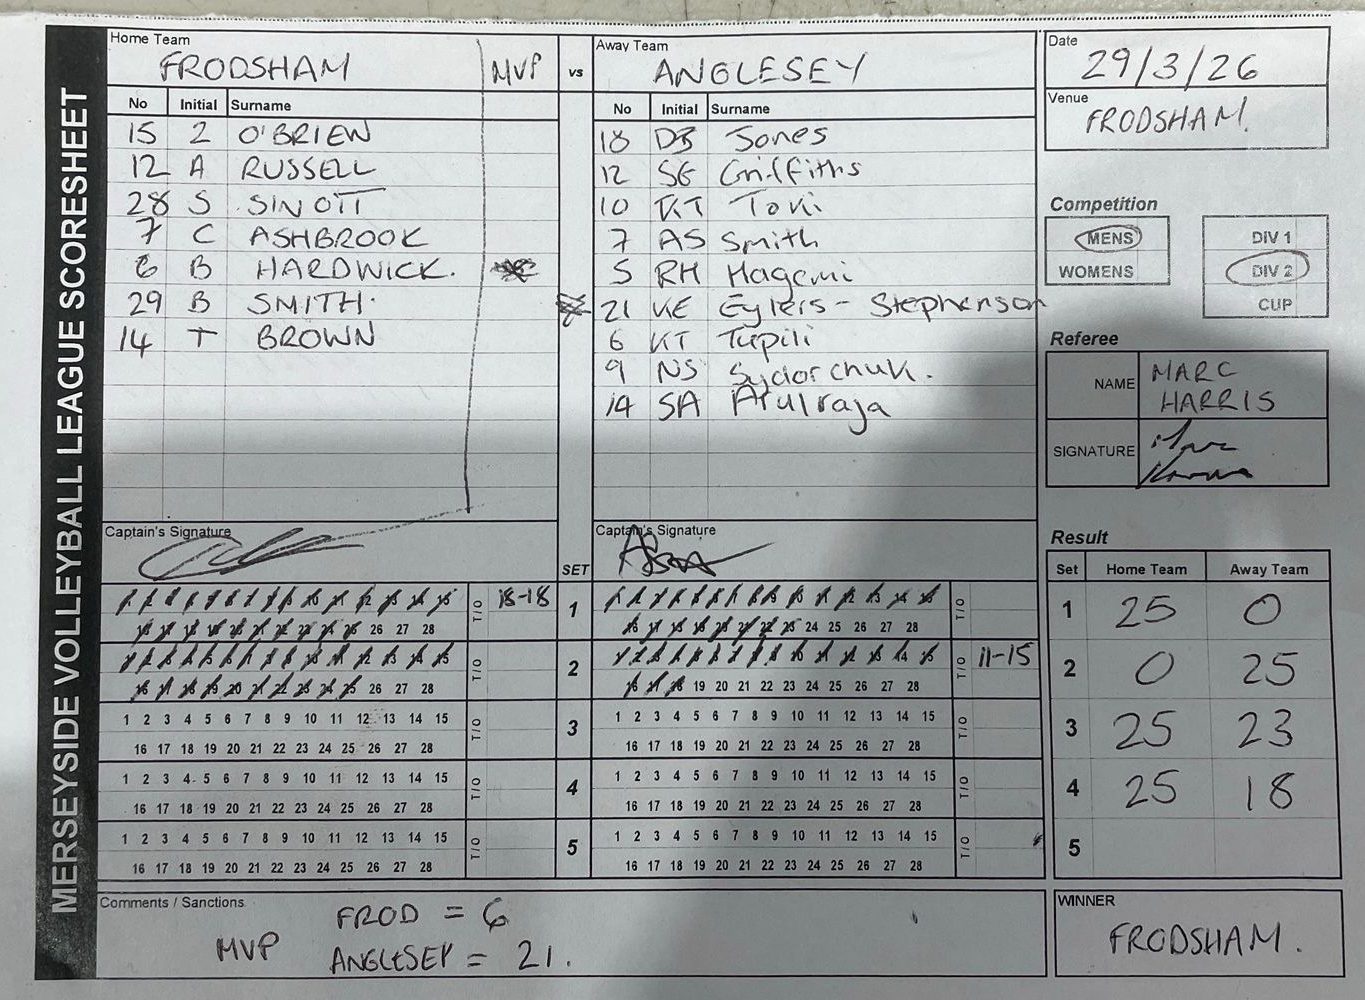 MERSEYSIDE VOLLEYBALL LEAGUE SCORESHEET
Home Team
FRODSHAM MVP
vs
Away Team
ANGLESEY
No Initial Surname
15 Z O'BRIEN
12 A RUSSELL
28 S SINOTT
7 C ASHBROOK
6 B HARDWICK.
29 B SMITH.
14 T BROWN
No Initial Surname
18 DB Jones
12 SG Griffiths
10 KT Toki
7 AS Smith
5 RH Hagemi
21 KE Eylers - Stephenson
6 KT Tupili
9 NS Sydorchuk.
14 SA Arulraja
Date
29/3/26
Venue
FRODSHAM.
Competition
MENS
WOMENS
DIV 1
DIV 2
CUP
Referee
NAME MARC
HARRIS
SIGNATURE
Captain's Signature
Captain's Signature
SET
1 2 3 4 5 6 7 8 9 10 11 12 13 14 15 T/O 18-18
16 17 18 19 20 21 22 23 24 25 26 27 28
1
1 2 3 4 5 6 7 8 9 10 11 12 13 14 15 T/O
16 17 18 19 20 21 22 23 24 25 26 27 28
1 2 3 4 5 6 7 8 9 10 11 12 13 14 15 T/O
16 17 18 19 20 21 22 23 24 25 26 27 28
2
1 2 3 4 5 6 7 8 9 10 11 12 13 14 15 T/O 11-15
16 17 18 19 20 21 22 23 24 25 26 27 28
1 2 3 4 5 6 7 8 9 10 11 12 13 14 15 T/O
16 17 18 19 20 21 22 23 24 25 26 27 28
3
1 2 3 4 5 6 7 8 9 10 11 12 13 14 15 T/O
16 17 18 19 20 21 22 23 24 25 26 27 28
1 2 3 4 5 6 7 8 9 10 11 12 13 14 15 T/O
16 17 18 19 20 21 22 23 24 25 26 27 28
4
1 2 3 4 5 6 7 8 9 10 11 12 13 14 15 T/O
16 17 18 19 20 21 22 23 24 25 26 27 28
1 2 3 4 5 6 7 8 9 10 11 12 13 14 15 T/O
16 17 18 19 20 21 22 23 24 25 26 27 28
5
1 2 3 4 5 6 7 8 9 10 11 12 13 14 15 T/O
16 17 18 19 20 21 22 23 24 25 26 27 28
Result
Set Home Team Away Team
1 25 0
2 0 25
3 25 23
4 25 18
5
Comments / Sanctions
FROD = 6
MVP ANGLESEY = 21.
WINNER
FRODSHAM.